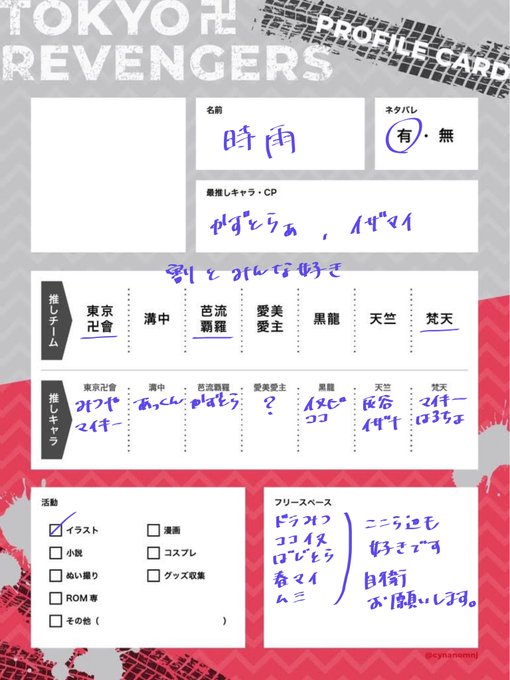 TOKYO卍
REVENGERS
PROFILE CARD
名前
時雨
ネタバレ
有・無
最推しキャラ・CP
かずとらぁ , イザマイ
割とみんな好き
推しチーム
東京卍會 溝中 芭流覇羅 愛美愛主 黒龍 天竺 梵天
推しキャラ
東京卍會 溝中 芭流覇羅 愛美愛主 黒龍 天竺 梵天
みつや あっくん かずとら ? イヌピ 灰谷 マイキー
マイキー ココ イザナ はるちよ
活動
イラスト 漫画
小説 コスプレ
ぬい撮り グッズ収集
ROM専
その他 ( )
フリースペース
ドラみつ
ココイヌ
ばじとら
春マイ
ムミ
ここら辺も
好きです
自衛
お願いします。
@cynanomnj